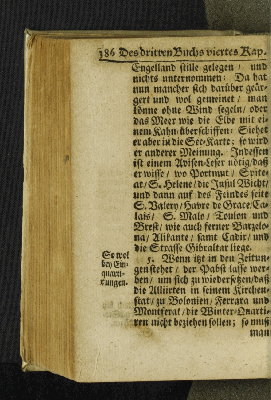 186 Des dritten Buchs viertes Kap.
Engelland stille gelegen / und
nichts unternommen: Da hat
nun mancher sich darüber geär-
gert und wol gemeinet / man
könne ohne Wind segeln / oder
das Meer wie die Elbe mit ei-
nem Kahn überschiffen: Siehet
er aber in die See-Karte; so wird
er anderer Meinung. Indessen
ist einem Avisen-Leser nötig / daß
er wisse / wo Portmut / Spite-
at / S. Helene / die Insul Wicht /
und dann auf des Feindes seite
S. Valery / Havre de Grace / Ca-
lais / S. Malo / Toulon und
Brest / wie auch ferner Barzelo-
na / Alikante / samt Cadix / und
die Strasse Gibraltar liege.
So wol
bey Ein-
quarti-
rungen.
5. Wenn itzt in den Zeitun-
gen stehet / der Pabst lasse wer-
ben / um sich zu wiedersetzen / daß
die Alliirten in seinem Kirchen-
stat / zu Bolonien / Ferrara und
Montferat / die Winter-Quarti-
ren nicht beziehen sollen; so muß
man